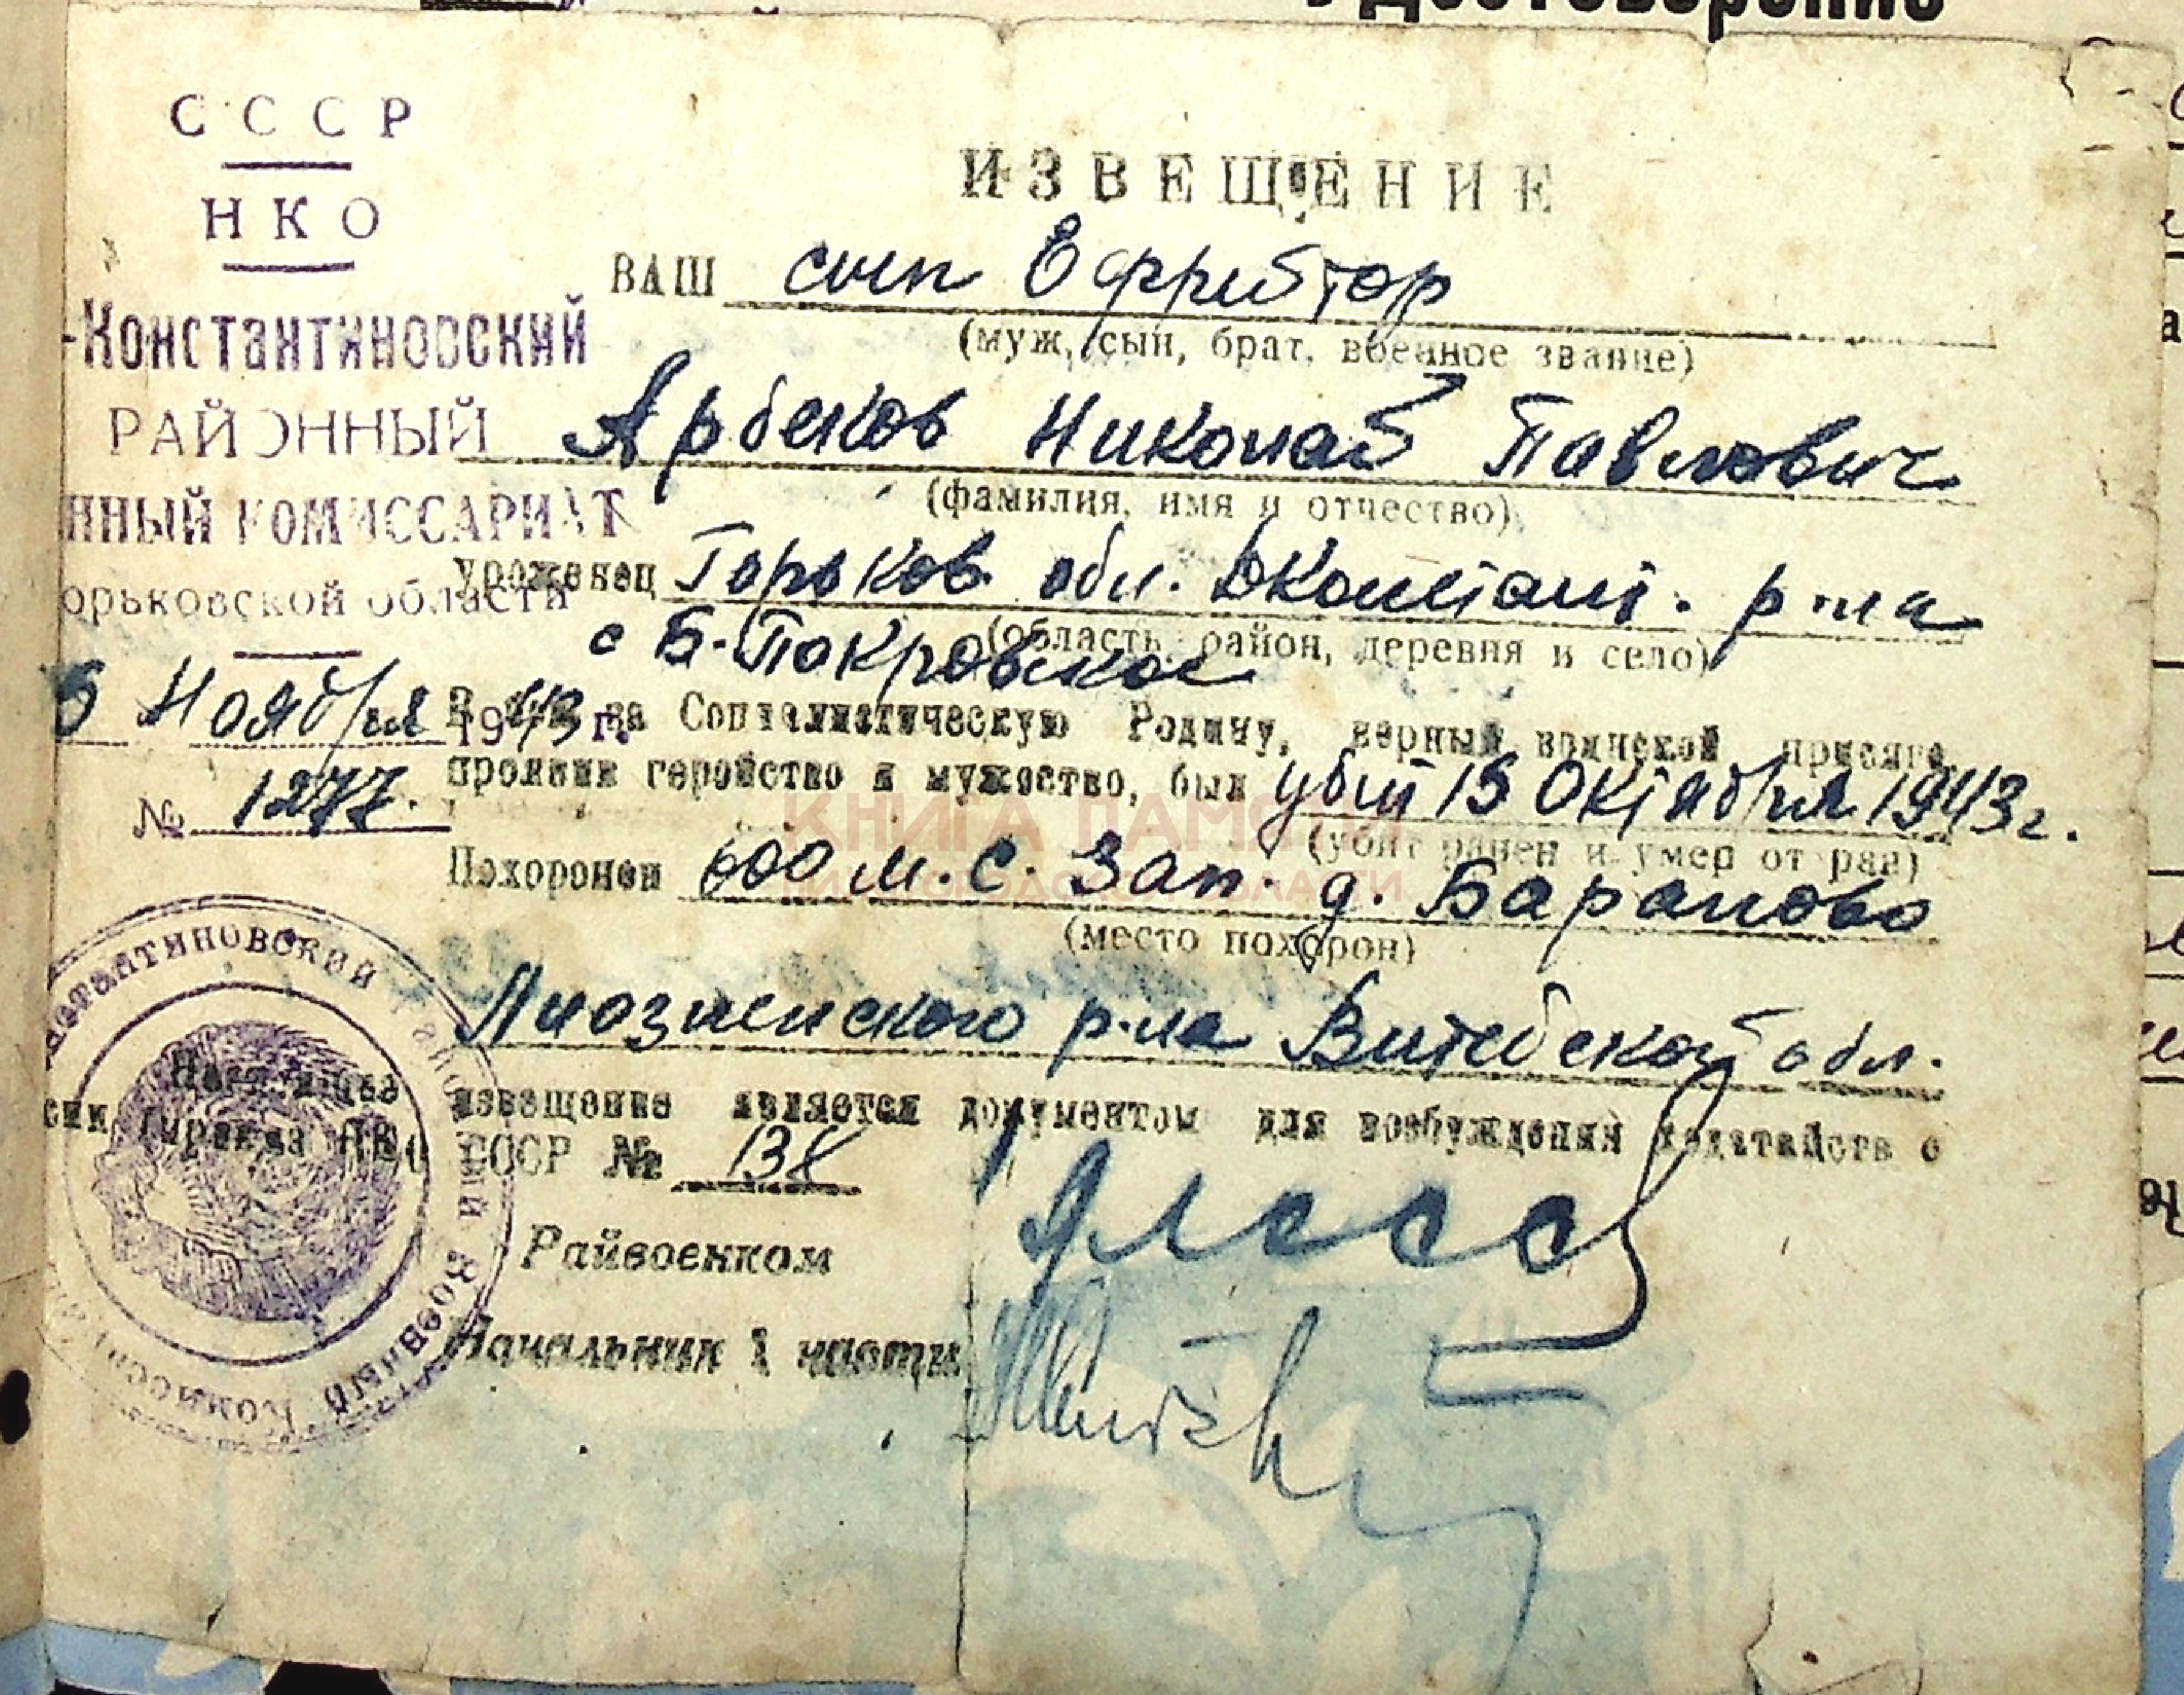 С С С Р
Н К О
-Константиновский
РАЙОННЫЙ
нный комиссариат
орьковской области
Ноября 1943 г.
№ 1277.
ИЗВЕЩЕНИЕ
ВАШ сын Ефрейтор
(муж, сын, брат, военное звание)
Арбеков Николай Павлович
(фамилия, имя и отчество)
уроженец Горьков. обл. ДКонстант. р-на
(область, район, деревня и село)
с Б-Покровское
за Социалистическую Родину, верный воинской присяге,
проявив геройство и мужество, был убит 15 Октября 1943 г.
(убит ранен и умер от ран)
Похоронен 600 м. С. Зап. д. Бараново
(место похорон)
Лиозненского р-на Витебской обл.
Настоящее извещение является документом для возбуждения ходатайств о
сии (приказ НКО СССР № 138
Райвоенком
Начальник 1 части
константиновский районный Военный Комиссариат
КНИГА ПАМЯТИ
НИЖЕГОРОДСКОЙ ОБЛАСТИ